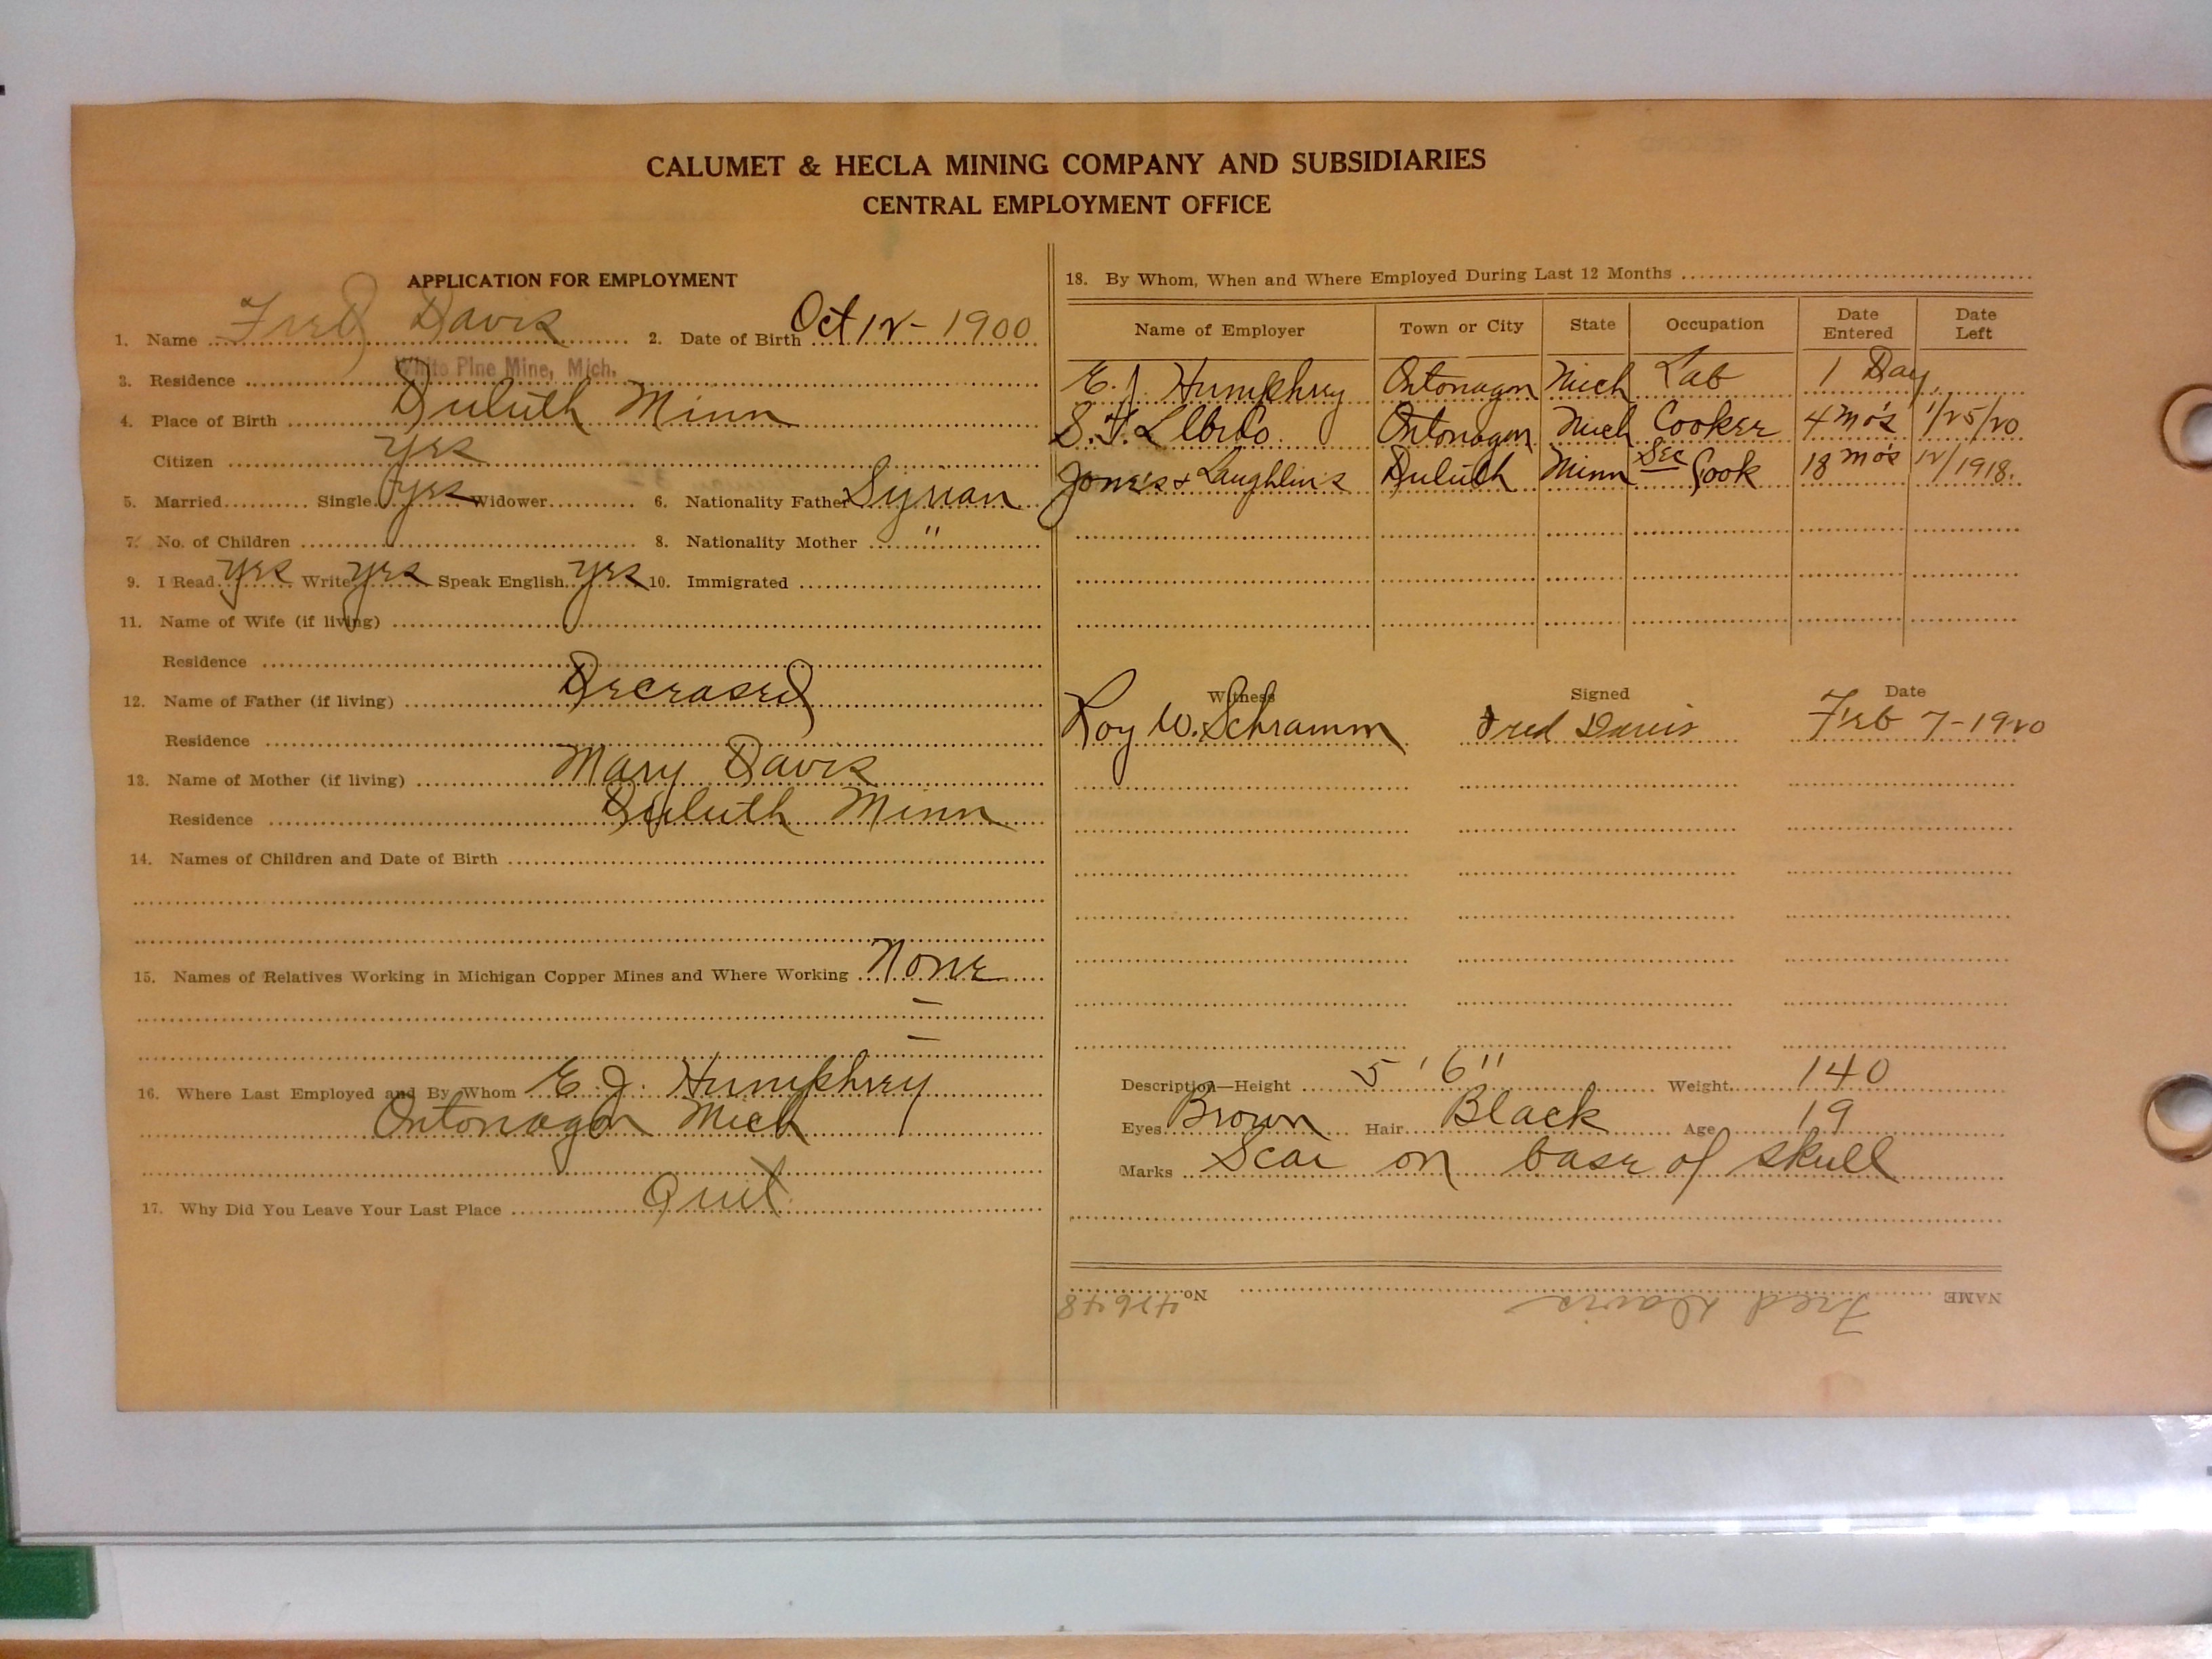 CALUMET & HECLA MINING COMPANY AND SUBSIDIARIES
CENTRAL EMPLOYMENT OFFICE
APPLICATION FOR EMPLOYMENT
1. Name Fred Davis 2. Date of Birth Oct 12 - 1900
3. Residence White Pine Mine, Mich.
4. Place of Birth Duluth Minn
Citizen Yes
5. Married Single yes Widower 6. Nationality Father Syrian
7. No. of Children 8. Nationality Mother "
9. I Read yes Write yes Speak English yes 10. Immigrated
11. Name of Wife (if living)
Residence
12. Name of Father (if living) Deceased
Residence
13. Name of Mother (if living) Mary Davis
Residence Duluth Minn
14. Names of Children and Date of Birth
15. Names of Relatives Working in Michigan Copper Mines and Where Working None
16. Where Last Employed and By Whom E. J. Humphrey
Ontonagon Mich
17. Why Did You Leave Your Last Place Quit
18. By Whom, When and Where Employed During Last 12 Months
Name of Employer Town or City State Occupation Date Entered Date Left
E. J. Humphrey Ontonagon Mich Lab 1 Day
Ontonagon Mich Cooker 4 mo's 1/25/20
Jones & Laughlin's Duluth Minn Sec Cook 18 mo's 12/1918.
Witness Signed Date
Roy W. Schramm Fred Davis Feb 7 - 1920
Description—Height 5' 6" Weight 140
Eyes Brown Hair Black Age 19
Marks Scar on base of skull
NAME Fred Davis No.